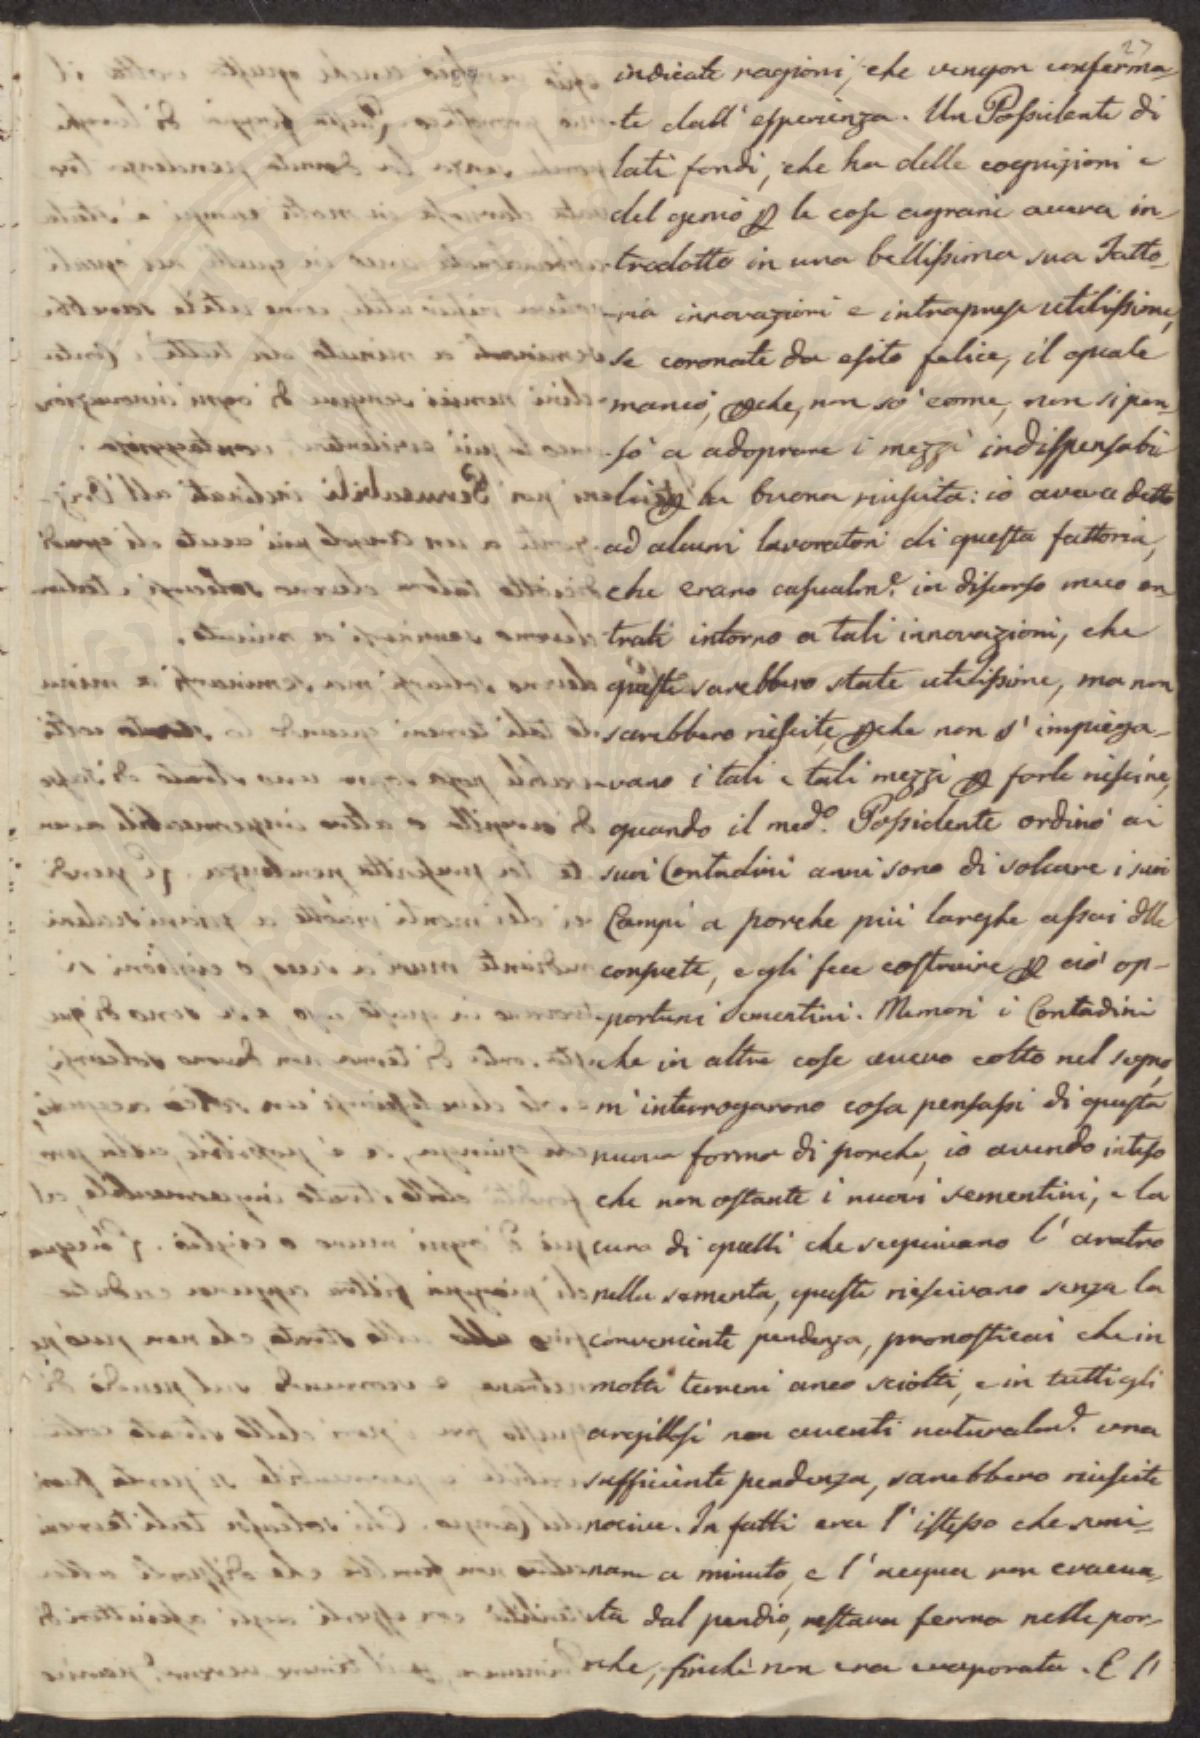 27
indicate ragioni, che vengon conferma-
te dall'esperienza. Un Possidente di
lati fondi, che ha delle cognizioni e
del genio ꝑ le cose agrarie aveva in-
trodotto in una bellissima sua Fatto-
ria innovazioni e intraprese utilissime,
se coronate da esito felice, il quale
mancò, ꝑche, non sò come, non si pen-
sò a adoprare i mezzi indispensabi
li ꝑ la buona riuscita: io aveva detto
ad alcuni lavoratori di questa fattoria,
che erano casualm.e in discorso meco en
trati intorno a tali innovazioni, che
queste sarebbero state utilissime, ma non
sarebbero riescite, ꝑche non s'impiega-
vano i tali e tali mezzi ꝑ farle riescire,
quando il med.o Possidente ordinò ai
suoi Contadini anni sono di solcare i suoi
Campi a porche più larghe assai dlle
consuete, e gli fece costruire ꝑ ciò op-
portuni sementini. Memori i Contadini
che in altre cose avevo colto nel segno,
m'interrogarono cosa pensassi di questa
nuova forma di porche, io avendo inteso
che non ostante i nuovi sementini, e la
cura di quelli che seguivano l'aratro
nella sementa, queste riescivano senza la
conveniente pendenza, pronosticai che in
molti terreni anco sciolti, e in tutti gli
argillosi non aventi naturalm.e una
sufficiente pendenza, sarebbero riuscite
nocive. In fatti era l'istesso che semi-
nare a minuto, e l'acqua non evacua-
ta dal pendio, restava ferma nelle por-
che, finchè non era evaporata. E l'